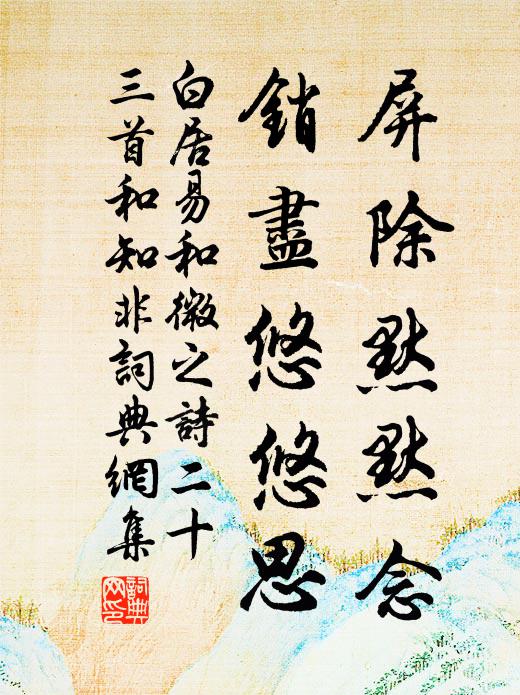 屏除默默念
銷盡悠悠思
白居易和微之詩二十
三首和知非詞典網集
詞典
网印